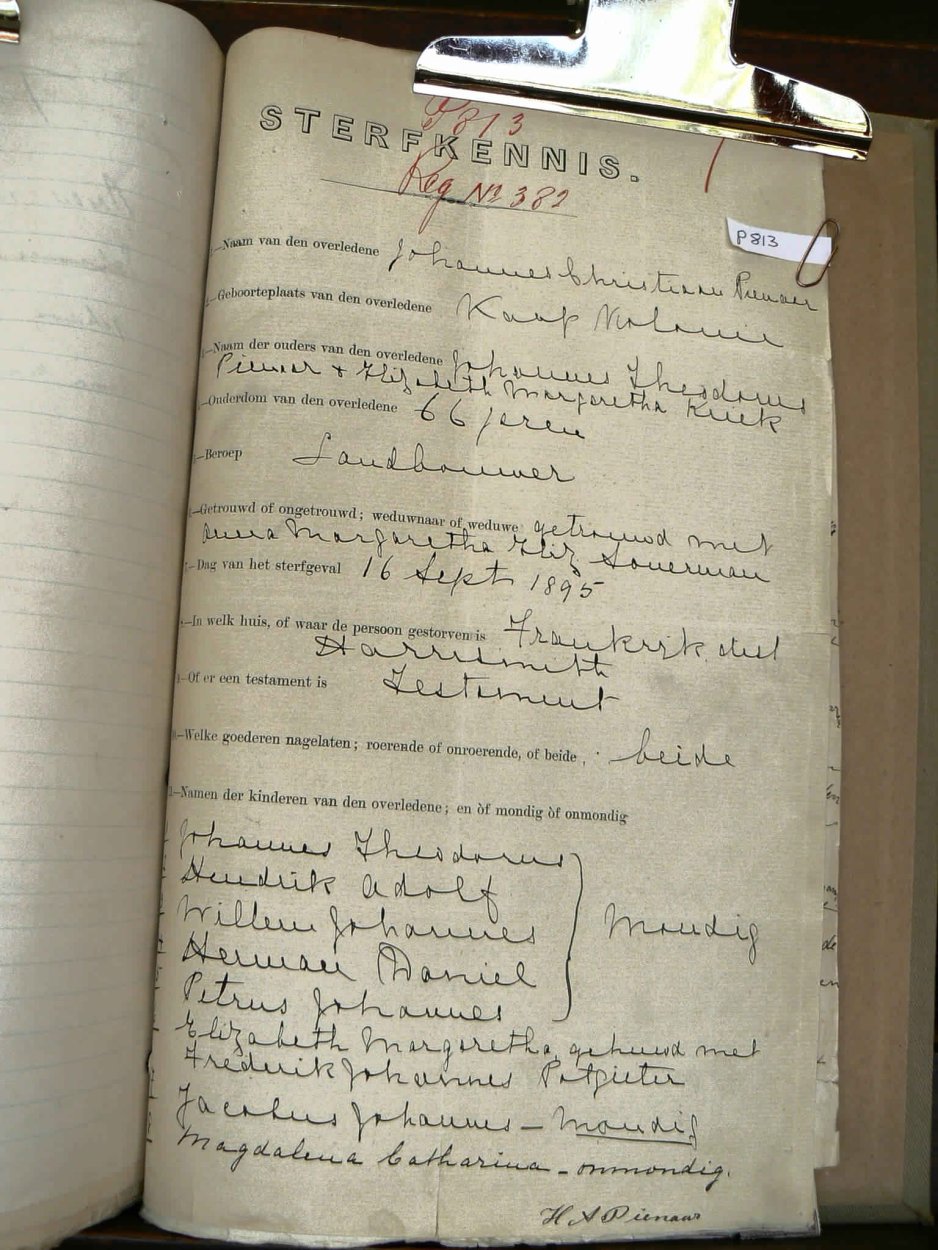 P 813
STERFKENNIS.
Reg № 382
P 813
—Naam van den overledene Johannes Christiaan Pienaar
—Geboorteplaats van den overledene Kaap Kolonie
—Naam der ouders van den overledene Johannes Theodorus
Pienaar & Elizabeth Margaretha Kriek
—Ouderdom van den overledene 66 jaren
—Beroep Landbouwer
—Getrouwd of ongetrouwd; weduwnaar of weduwe getrouwd met
Anna Margaretha Eliz Souerman
—Dag van het sterfgeval 16 Sept 1895
—In welk huis, of waar de persoon gestorven is Frankrijk dist
Harrismith
—Of er een testament is Testament
—Welke goederen nagelaten; roerende of onroerende, of beide, beide
—Namen der kinderen van den overledene; en òf mondig òf onmondig
Johannes Theodorus
Hendrik Adolf
Willem Johannes
Mondig
Herman Daniel
Petrus Johannes
Elizabeth Margaretha gehuwd met
Frederik Johannes Potgieter
Jacobus Johannes – mondig
Magdalena Catharina – onmondig.
H A Pienaar